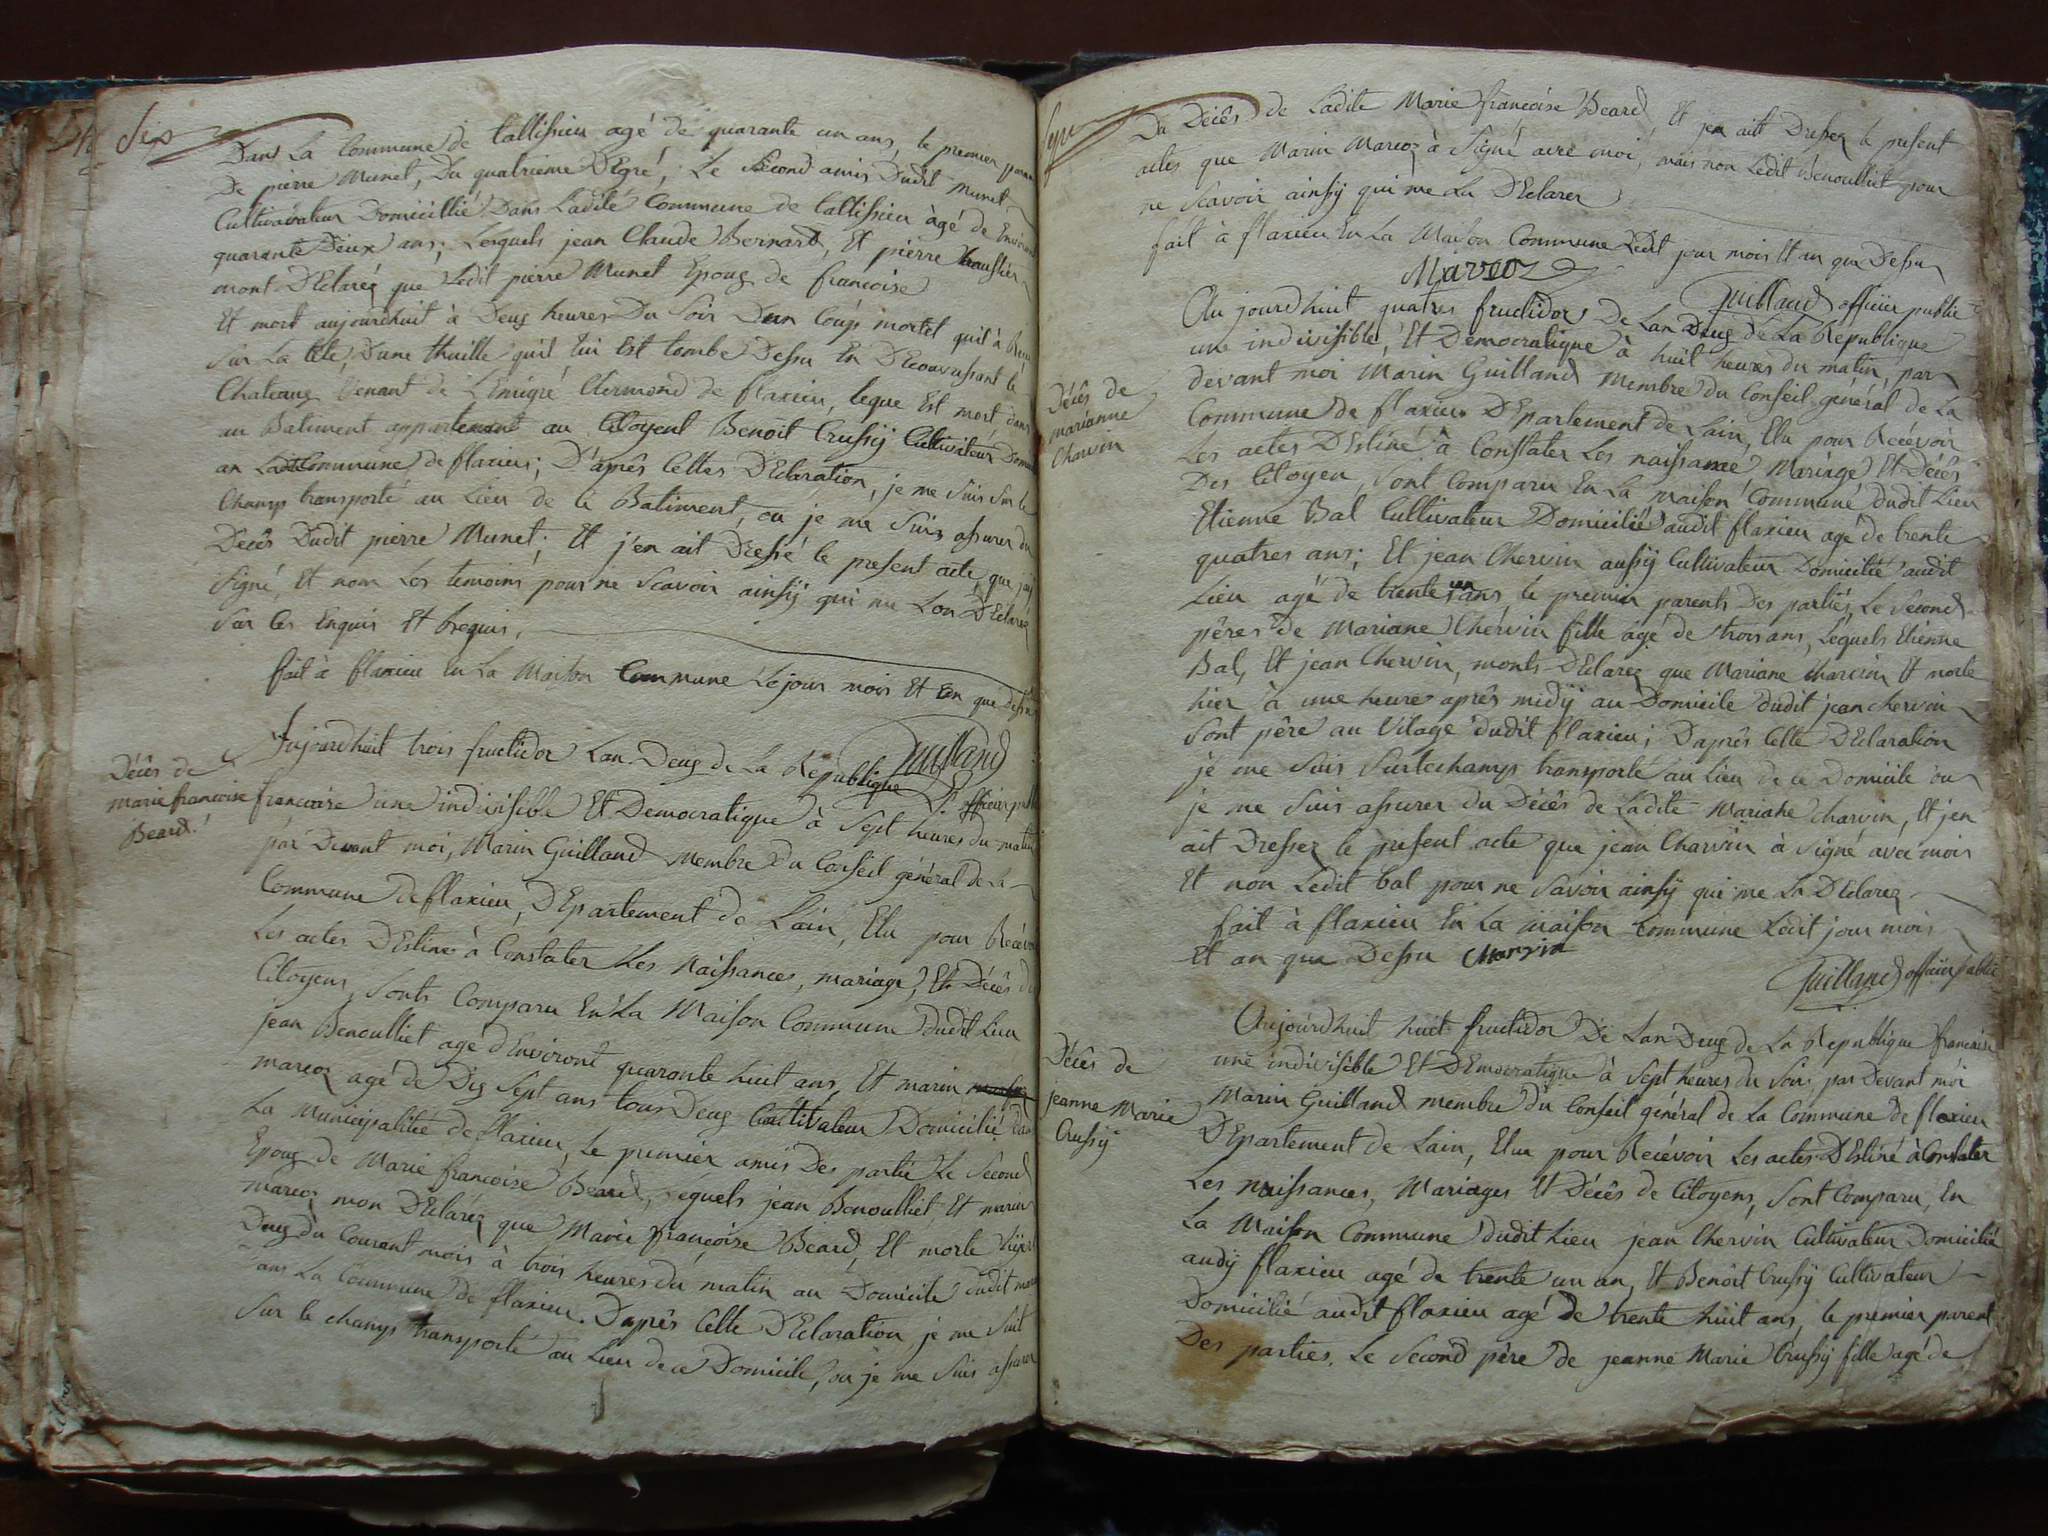 Six
Dans La Commune de tallissieu agé de quarante un ans, le premier paran
De pierre Munet, Du quatrieme DEgré, Le Second amis Dudit Munet
Cultivavateur Domicillié Dans Ladite Commune de tallissieu âgé de Environt
quarante Deux ans; Lesquels jean Claude Bernard, Et pierre
mont DEclaréz que Ledit pierre Munet Epoux de francoise
Et mort aujourdhuit à Deux heures Du Soir Dun Coup mortel quil à Recu
Sur La tête, Dune thuille qu'il Lui Est tombe Dessu En DEcouvrissant le
Chateaux Venant de L'Emigré Clermond de flaxieu, leque Est mort dans
un Batiment appartenant au Citoyent Benoit Crussÿ Cultivateur
an Ladit Commune de flaxieu; D'aprês Cettes DEclaration, je me Suis Sur le
Champ transporté au Lieu de ce Batiment, ou je me Suis assurer du
Decês Dudit pierre Munet; Et j'en ait Dressé le present acte, que jay
Signé, Et nom Les temoins pour ne Scavoir ainsÿ qui me Lon DEclaréz
Sur Ces Enquis Et Requis,
fait à flaxieu En La Maison Commune Lejour mois Et an que Dessu
Guilland
officier public
Décês de
marie francoise
Beard.
Aujourdhuit trois fructidor Lan Deux de La Republique
francaire une indivisible Et Democratique à Sept heures du matin
par Devant moi, Marin Guilland Membre du Conseil général de La
Commune de flaxieu, DEpartement de Lain, Elu pour Recévoir
Les actes DEstiné à Constater Les Naissances, mariage, Et Décês de
Citoyens, Sonts Comparu En La Maison Commune dudit Lieu
jean Benoulliet agé dEnviront quaronte huit ans, Et marin
marcoz agé de Dix Sept ans tous Deux Cultivateur Domicilié Dans
La Municipalitté de flaxieu, Le premier amis Des partie Le Second
Epoux de Marie francoise Beard, Lequels jean Benoulliet, Et marin
marcoz mon DEclaréz que Marie françoise Beard, Et morte hÿer
Deux du Courant mois à trois heures du matin au Domicile dudit marcoz
dans La Commune de flaxieu. Daprês Cette DEclaration, je me Suit
Sur le champs transporté au Lieu de ce Domicile, ou je me Suis assurer
Du Decês de Ladite Marie françoise Beard, Et jen ait Dresser le present
actes que Marin Marcoz à Signé avec moi, mais non Ledit Bénoulliet pour
ne Scavoir ainsÿ qui me La DEclarer
fait à flaxieu En La Maison Commune Ledit jour mois Et an que Dessu
Marcoz
Guilland officier public
Décês de
marianne
Charvin
Au jourdhuit quatres fructidor de Lan Deux de La Republique
une indivisible, Et Democratique à huit heures du matin, par
devant moi Marin Guilland Membre du Conseil général de La
Commune de flaxieu DEpartement de Lain, Elu pour Recévoir
Les actes DEstiné à Constater Les naissance, Mariage, Et Décês
Des Citoyen, Sont Comparu En La maison Commune dudit Lieu
Etienne Bal Cultivateur Domicilié audit flaxieu agé de trente
quatres ans; Et jean Chervin aussÿ Cultivateur Domicilié audit
Lieu agé de trente un ans, le premier parents Des partiés, Le Second
pêres de Mariane Chérvin fille agé de trois ans, Lequels Etienne
Bal, Et jean Chervin, monts DEclarez que Mariane Charvin Et morte
hier à une heure aprês midÿ au Domicile dudit jean chervin
Sont pêre au Vilage dudit flaxieu; Daprês Cette DEclaration
je me Suis Surlechamps transporté au Lieu de ce Domicile ou
je me Suis assurer du Décês de Ladite Mariane Charvin, Et j'en
ait Dresser le present acte que jean Charvin à Signé avec mois
Et non Ledit bal pour ne Savoir ainsÿ qui me La DEclarez
fait à flaxieu En La maison Commune Ledit jour mois
Et an que Dessu Charvin
Guilland officier public
Décês de
jeanne Marie
Crussÿ
Aujourdhuit huit fructidor De Lan Deux de La Republique francaise
une indivisible Et DEmocratique à Sept heures du Soir, par Devant moi
Marin Guilland membre du Conseil général de La Commune de flaxieu
DEpartement de Lain, Elue pour Recévoir Les actes DEstiné à Constater
Les Naissances, Mariages Et Décês de Citoyens, Sont Comparu, En
La Maison Commune dudit Lieu jean Chervin Cultivateur Domicilié
audÿ flaxieu agé de trente un an, Et Benoit Crussÿ Cultivateur
Domicilié audit flaxieu agé de trente huit ans, le premier parent
Des parties, Le Second père de jeanne Marie Crussÿ fille agé de